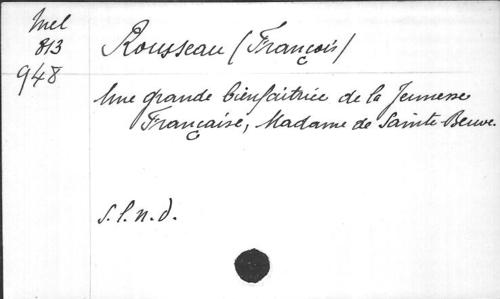 Mel
813
948
Rousseau (François)
Une grande bienfaitrice de la Jeunesse
Française, Madame de Sainte-Beuve.
s.l.n.d.